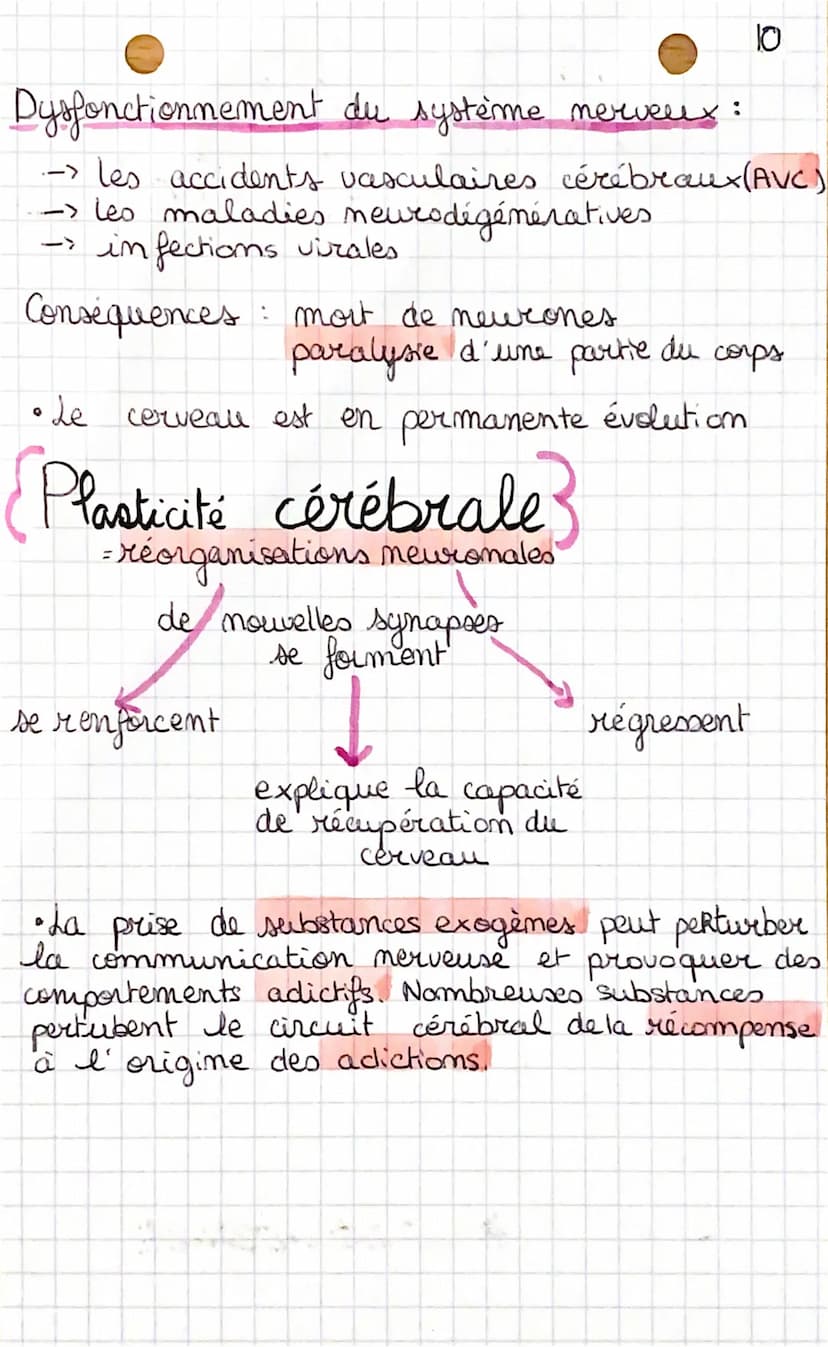 10
Dysfonctionnement du système nerveux :
-> les accidents vasculaires cérébraux (AVC)
-> les maladies neurodégénératives
-> infections virales
Conséquences : mort de neurones
paralysie d'une partie du corps
• Le cerveau est en permanente évolution
{Plasticité cérébrale}
= réorganisations neuronales
de nouvelles synapses
se forment
se renforcent
régressent
explique la capacité
de récupération du
cerveau
• La prise de substances exogènes peut perturber
la communication nerveuse et provoquer des
comportements adictifs. Nombreuses substances
pertubent le circuit cérébral de la récompense
à l'origine des adictions.